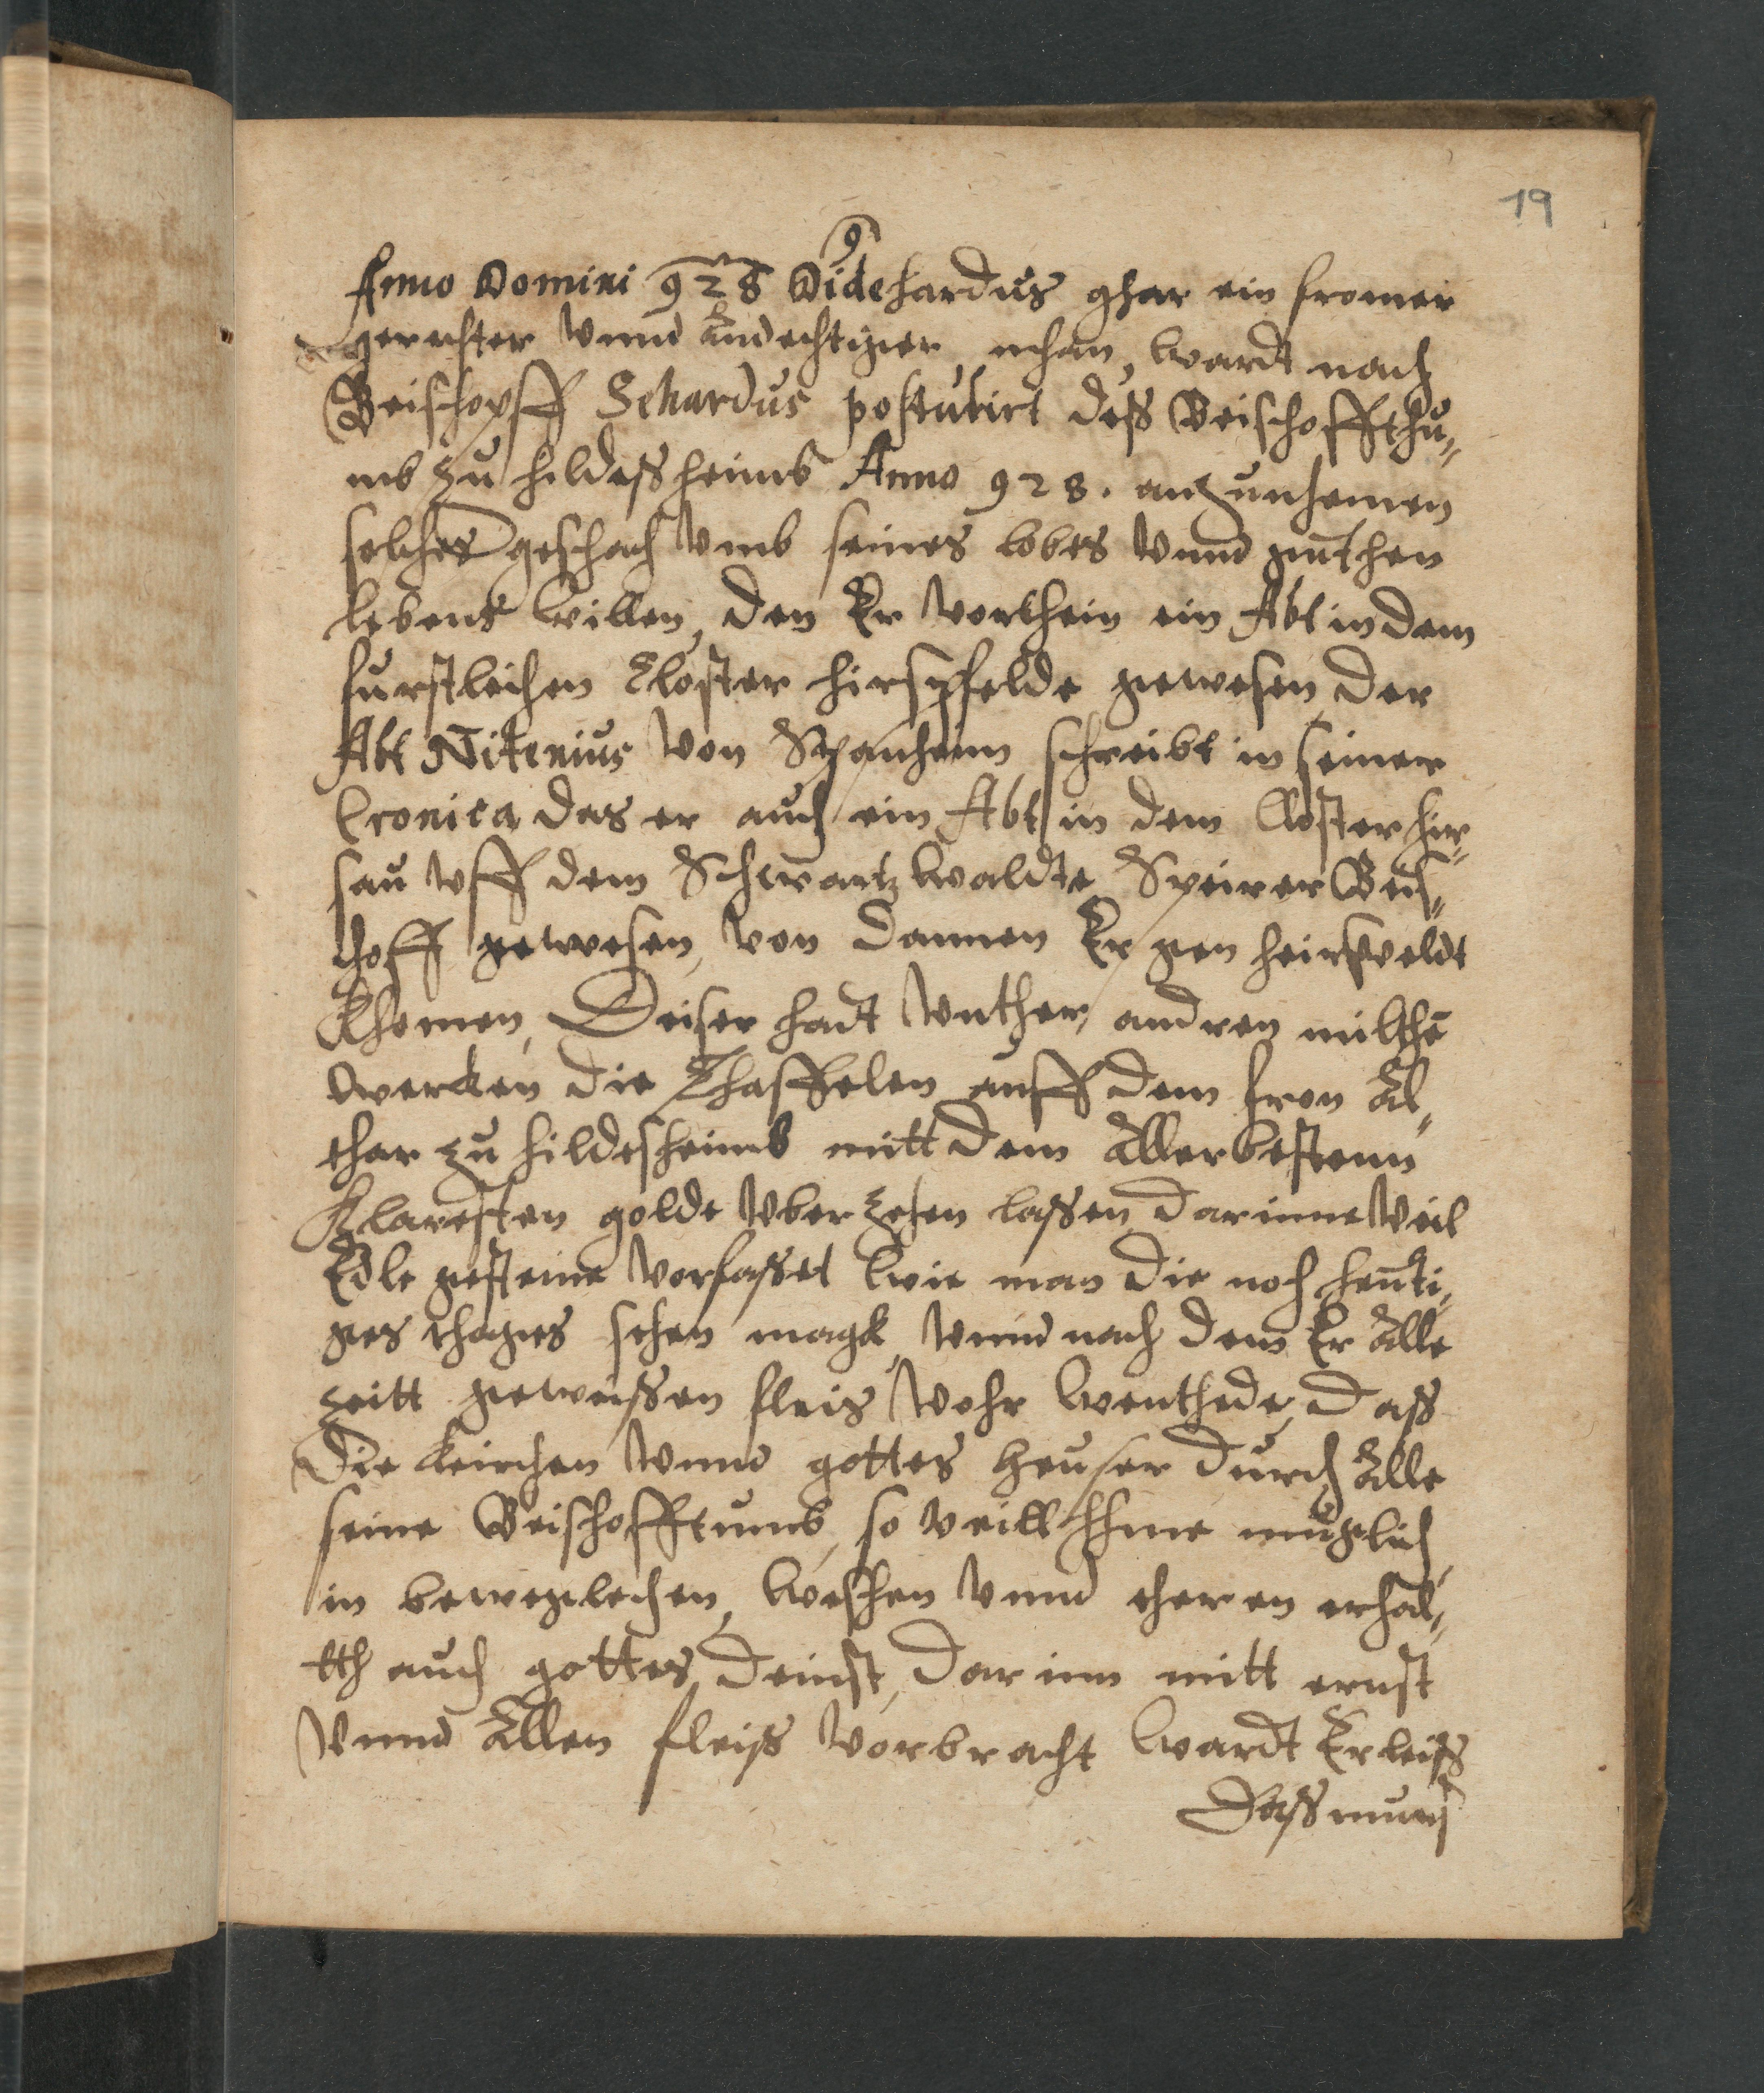 19
9
Anno Domini 928 Didehardus ghar ein fromer
gerechter vnnd andechtiger mhan, wardt nach
Beischopff Sehardus postulirt deß Beischoffthu„
mb zu hildeßheimb Anno 928. anzunhemen
solches geschach vmb seines lobes vnnd guthen
lebens willen, den Er vorhein ein Abt in dem
furstleichen Closter hirsfelde gewesen, der
Abt Nitenius von Spanheim schreibt in seiner
Cronica das er auch ein Abt in dem Closter hir„
sau vff dem Schwartzwaldte Speirer Beis„
choff gewesen, von dannen Er gen heirsveldt
Khomen, Deiser hadt vnther andren milthē
wercken die Thaffelen auff dem fron Al„
thar zu hildesheimb mitt dem Allerbestenn
Klaresten golde vberzehen laßen darinne veil
Edle gesteine vorfasset wie man die noch heuti„
ges thages sehen magk vnnd nach dem Er Alle
zeitt gewissen fleis vohr wenthede, daß
die Keirchen vnnd gottes heuser durch Alle
seine Beischofftumb, so veill Ihme muglich
in beweglechen, weßhen vnnd eheren erhal„
tth auch gottes deinst, dar inn mitt ernst
vnnd Allen fleiß vorbracht wardt Er leiß
Daß mun